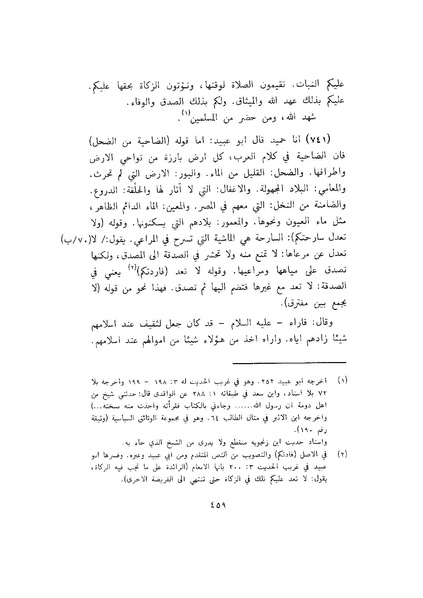 عليكم النبات. تقيمون الصلاة لوقتها، وتؤتون الزكاة بحقها عليكم.
عليكم بذلك عهد الله والميثاق. ولكم بذلك الصدق والوفاء.
شهد الله، ومن حضر من المسلمين(١).
(٧٤١) أنا حميد قال أبو عبيد: أما قوله (الضاحية من الضحل)
فان الضاحية في كلام العرب، كل أرض بارزة من نواحي الأرض
وأطرافها. والضحل: القليل من الماء. والبور: الأرض التي لم تحرث.
والمعامي: البلاد المجهولة. والاغفال: التي لا آثار لها والحلقة: الدروع.
والضامنة من النخل: التي معهم في المصر. والمعين: الماء الدائم الظاهر،
مثل ماء العيون ونحوها. والمعمور: بلادهم التي يسكنونها. وقوله (ولا
تعدل سارحتكم): السارحة هي الماشية التي تسرح في المراعي. يقول:/ لا(٧٠/ب)
تعدل عن مرعاها: لا تمنع منه ولا تحشر في الصدقة الى المصدق، ولكنها
تصدق على مياهها ومراعيها. وقوله لا تعد (فاردتكم)(٢) يعني في
الصدقة: لا تعد مع غيرها فتضم اليها ثم تصدق. فهذا نحو من قوله (لا
يجمع بين مفترق).
وقال: فاراه - عليه السلام - قد كان جعل لثقيف عند اسلامهم
شيئا زادهم اياه. واراه اخذ من هؤلاء شيئا من اموالهم عند اسلامهم.
(١) اخرجه ابو عبيد ٢٥٢. وهو في غريب الحديث له ٣: ١٩٨ - ١٩٩ واخرجه بلا
٧٢ بلا اسناد، وابن سعد في طبقاته ١: ٢٨٨ عن الواقدي قال: حدثني شيخ من
اهل دومة ان رسول الله...... وجاءني بالكتاب فقرأته واخذت منه نسخته...)
واخرجه ابن الاثير في منال الطالب ٦٤. وهو في مجموعة الوثائق السياسية (وثيقة
رقم ١٩٠).
واسناد حديث ابن زنجويه منقطع ولا يدرى من الشيخ الذي جاء به.
(٢) في الاصل (فادتكم) والتصويب من النص المتقدم ومن ابي عبيد وغيره. وفسرها ابو
عبيد في غريب الحديث ٣: ٢٠٠ بانها الانعام (الزائدة على ما تجب فيه الزكاة،
يقول: لا تعد عليكم تلك في الزكاة حتى تنتهي الى الفريضة الاخرى).
٤٥٩